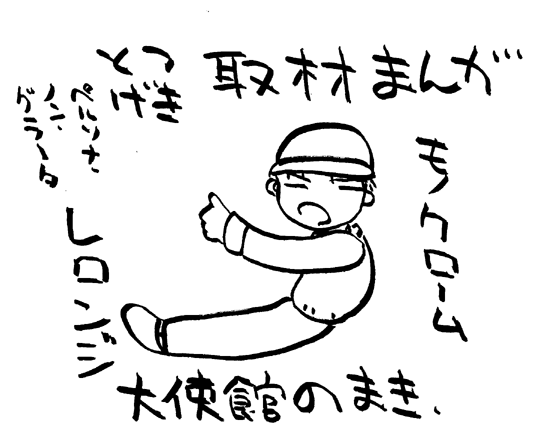 とつ
げき
取材まんが
モノクローム
ペルソナ、
ノン、
グラータ
レロンジ
大使館のまき、